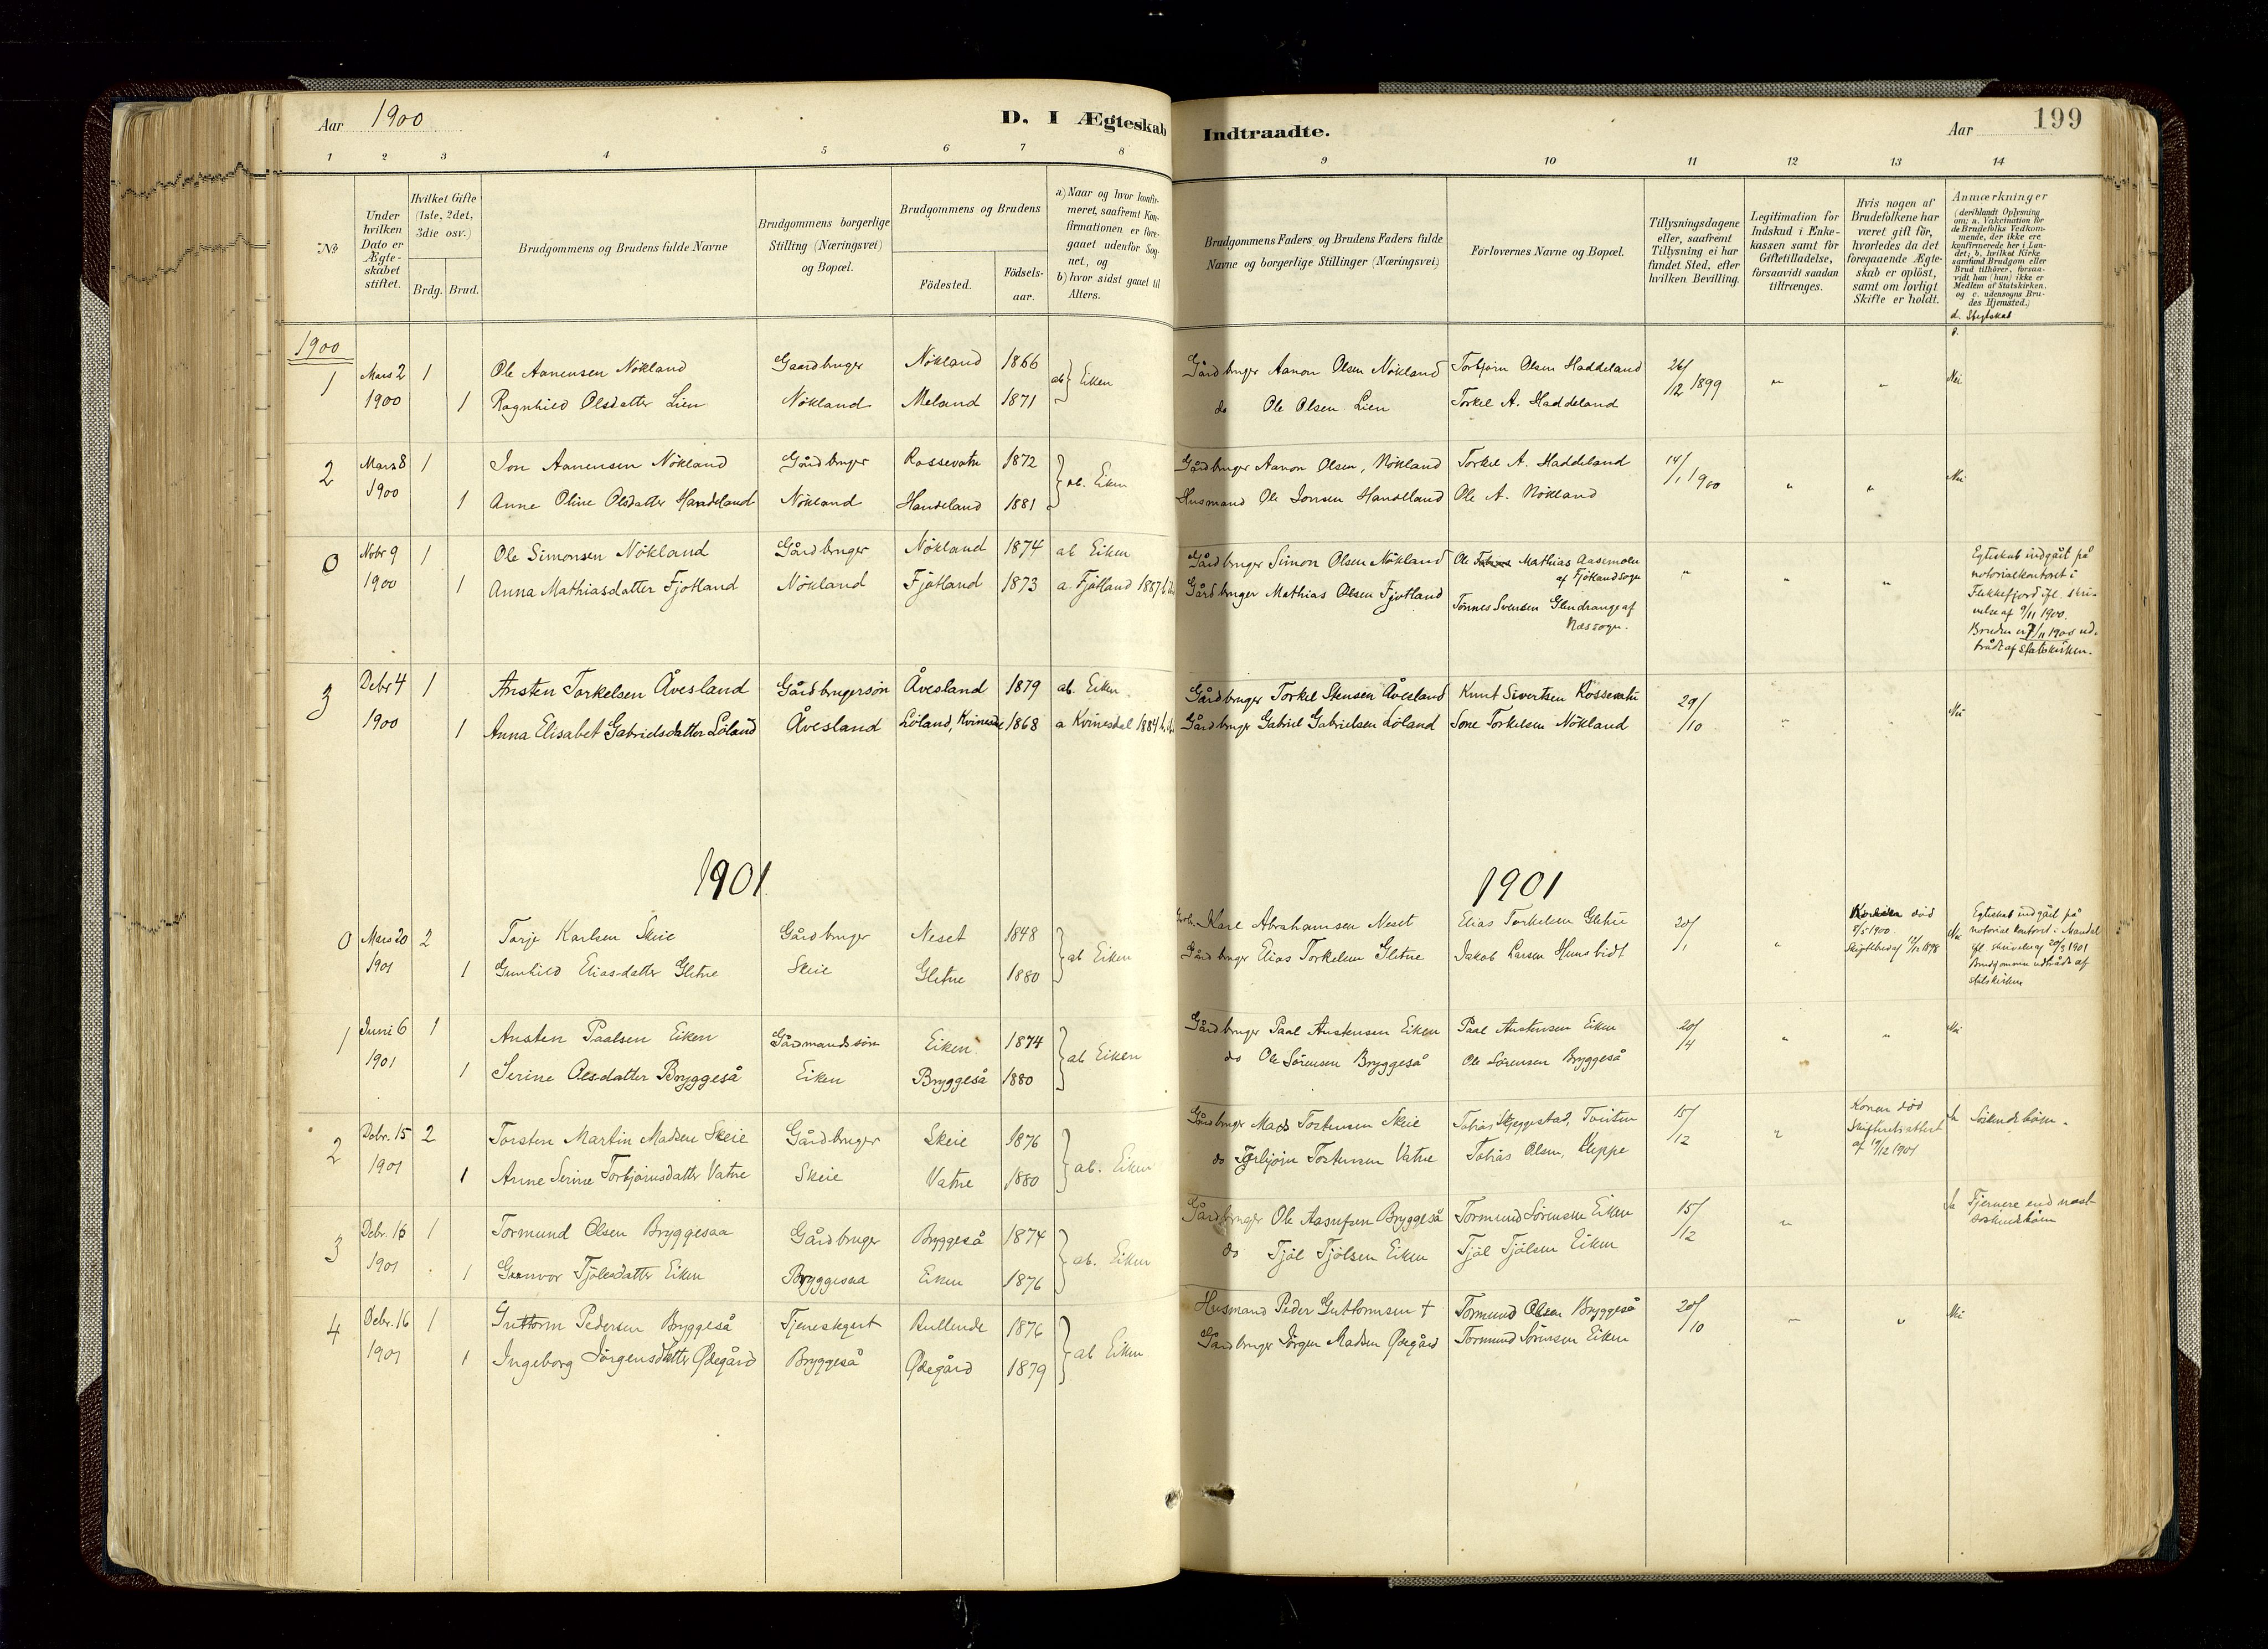 Aar 1900
D. I Ægteskab
Indtraadte.
Aar
199
1 2 3 4 5 6 7 8
9 10 11 12 13 14
№
Under hvilken Dato er Ægte-skabet stiftet.
Hvilket Gifte (1ste, 2det, 3die osv.)
Brdg. Brud.
Brudgommens og Brudens fulde Navne
Brudgommens borgerlige Stilling (Næringsvei) og Bopæl.
Brudgommens og Brudens
Födested.
Födsels-aar.
a) Naar og hvor konfir-meret, saafremt Kon-firmationen er fore-gaaet udenfor Sog-net, og
b) hvor sidst gaaet til Alters.
Brudgommens Faders og Brudens Faders fulde Navne og borgerlige Stillinger (Næringsvei)
Forlovernes Navne og Bopæl.
Tillysningsdagene eller, saafremt Tillysning ei har fundet Sted, efter hvilken Bevilling.
Legitimation for Indskud i Enke-kassen samt for Giftetilladelse, forsaavidt saadan tiltrænges.
Hvis nogen af Brudefolkene har været gift för, hvorledes da det foregaaende Ægte-skab er oplöst, samt om lovligt Skifte er holdt.
Anmærkninger
(deriblandt Oplysning om: a. Vakcination for de Brudefolks Vedkom-mende, der ikke ere konfirmerede her i Lan-det; b. hvilket Kirke samfund Brudgom eller Brud tilhörer, forsaa-vidt han (hun) ikke er Medlem af Statskirken, og c. udensogns Bru-des Hjemsted.)
d. Slegtskab
1900
1 Mars 2 1 Ole Aanensen Nökland Gaardbruger Nökland 1866 ab } Eiken Gårdbruger Aanon Olsen Nökland Torbjørn Olsen Haddeland 26/12 1899 " " Nei
1900 1 Ragnhild Olsdatter Lien Nökland Meland 1871 do Ole Olsen Lien Torkel A. Haddeland
2 Mars 8 1 Jon Aanensen Nökland Gårdbruger Rossevatn 1872 } ab. Eiken Gårdbruger Aanon Olsen, Nökland Torkel A. Haddeland 14/1 1900 " " Nei
1900 1 Anne Oline Olsdatter Handeland Nökland Handeland 1881 Husmand Ole Jonsen Handeland Ole A. Nökland
0 Nobr 9 1 Ole Simonsen Nökland Gårdbruger Nökland 1874 ab Eiken Gårdbruger Simon Olsen Nökland Ole Mathias Aasemolen
af Fjötlandsogn " " "
1900 1 Anna Mathiasdatter Fjotland Nökland Fjötland 1873 a. Fjötland 1887 Gårdbruger Mathias Olsen Fjotland
Tönnes Svensen Glendrange af
Næssogn.
Egteskab indgået på
notorialkontoret i
Flekkefjord ifl. skri-
velse af 9/11 1900.
Bruden er 7/11 1900 ud-
trådt af statskirken.
3 Debr 4 1 Ansten Torkelsen Åvesland Gårdbrugersön Åvesland 1879 ab. Eiken Gårdbruger Torkel Stensen Åvesland Knut Sivertsen Rossevatn 29/10 " Nei
1900 1 Anna Elisabet Gabrielsdatter Löland Åvesland Löland, Kvinesdal 1868 a Kvinesdal 1884 Gårdbruger Gabriel Gabrielsen Löland Sone Torkelsen Nökland
1901
1901
0 Mars 20 2 Torje Karlsen Skeie Gårdbruger Neset 1848 } ab Eiken Karl Abrahamsen Neset Elias Torkelsen Gletne 20/1 "
1901 1 Gunhild Eliasdatter Gletne Skeie Gletne 1880 Gårdbruger Elias Torkelsen Gletne Jakob Larsen Hunsbidt
død
1900
1898
Nei
Egteskab indgået på
notorialkontoret i Mandal
ifl. skrivelse af 20/3 1901
Brudgommen udtrådt af
statskirken
1 Juni 6 1 Ansten Paalsen Eiken Gårmandssøn Eiken 1874 } ab Eiken Gårdbruger Paal Anstensen Eiken Paal Anstensen Eiken 20/4 " " Nei
1901 1 Serine Olsdatter Bryggeså Eiken Bryggeså 1880 do Ole Sörensen Bryggeså Ole Sörensen Bryggeså
2 Debr. 15 2 Torsten Martin Madsen Skeie Gårdbruger Skeie 1876 } ab. Eiken Gårdbruger Mads Tostensen Skeie Tobias Skjeggestad, 15/12 "
1901 1 Anne Serine Torbjörnsdatter Vatne Skeie Vatne 1880 do Torbjörn Tostensen Vatne Tobias Olsen, Kleppe
Konen død
Skifteretsattest
af 14/12 1901
Ja Söskendebörn.
3 Debr. 16 1 Tormund Olsen Bryggesaa Gårdbruger Bryggeså 1874 } ab. Eiken Gårdbruger Ole Aasulsen Bryggeså Tormund Sörensen Eiken 15/12 "
1901 1 Gunvor Tjölsdatter Eiken Bryggesaa Eiken 1876 do Tjöl Tjölsen Eiken Tjöl Tjölsen Eiken
Ja Fjernere end næst-
söskendebörn
4 Debr. 16 1 Guttorm Pedersen Bryggeså Tjenestegut Rullende 1876 } ab Eiken Husmand Peder Guttormsen † Tormund Olsen Bryggeså 20/10 " " Nei
1901 1 Ingeborg Jörgensdatter Ødegård Bryggeså Ødegård 1879 Gårdbruger Jörgen Madsen Ødegård Tormund Sörensen Eiken